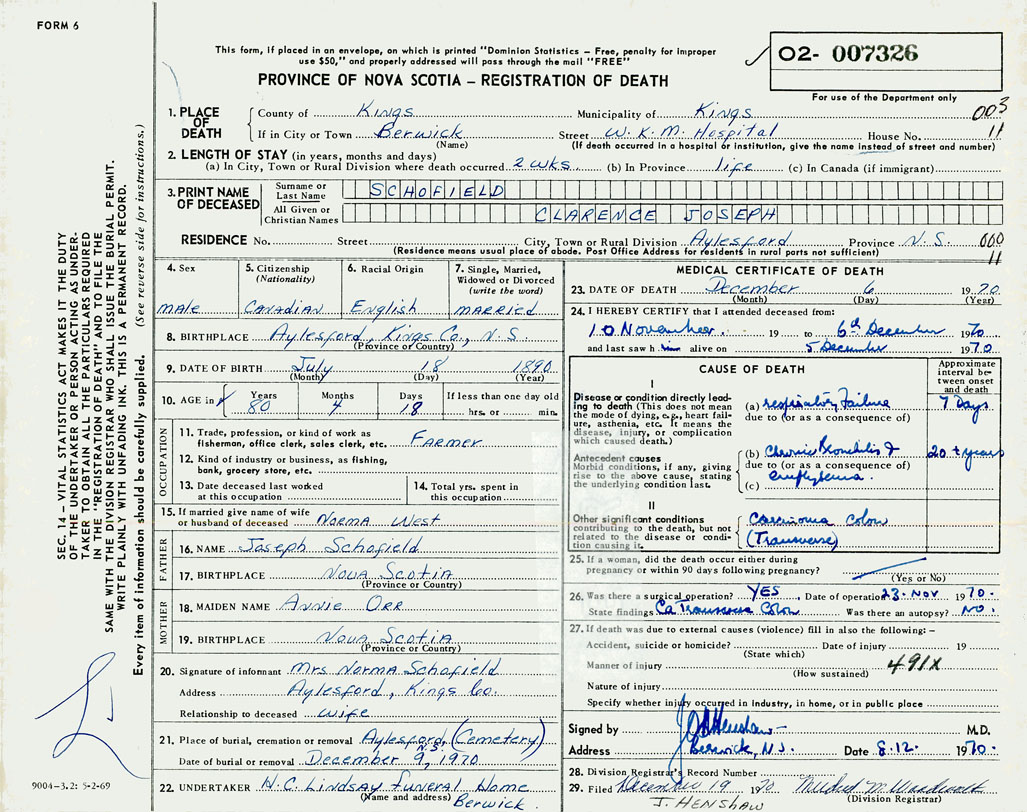 FORM 6
This form, if placed in an envelope, on which is printed "Dominion Statistics – Free, penalty for improper
use $50," and properly addressed will pass through the mail "FREE"
PROVINCE OF NOVA SCOTIA – REGISTRATION OF DEATH
02- 007326
For use of the Department only
003
11
1. PLACE OF DEATH
County of Kings Municipality of Kings
If in City or Town Berwick Street W. K. M. Hospital House No.
(Name) (If death occurred in a hospital or institution, give the name instead of street and number)
2. LENGTH OF STAY (in years, months and days)
(a) In City, Town or Rural Division where death occurred 2 wks (b) In Province life (c) In Canada (if immigrant)
3. PRINT NAME OF DECEASED
Surname or Last Name SCHOFIELD
All Given or Christian Names CLARENCE JOSEPH
RESIDENCE No. Street City, Town or Rural Division Aylesford Province N.S. 000
(Residence means usual place of abode. Post Office Address for residents in rural parts not sufficient) 11
4. Sex
male
5. Citizenship (Nationality)
Canadian
6. Racial Origin
English
7. Single, Married, Widowed or Divorced (write the word)
married
8. BIRTHPLACE Aylesford, Kings Co., N.S.
(Province or Country)
9. DATE OF BIRTH July 18 1890
(Month) (Day) (Year)
10. AGE in Years Months Days If less than one day old
80 4 18 hrs. or min.
OCCUPATION
11. Trade, profession, or kind of work as
fisherman, office clerk, sales clerk, etc. Farmer
12. Kind of industry or business, as fishing,
bank, grocery store, etc.
13. Date deceased last worked
at this occupation
14. Total yrs. spent in
this occupation
15. If married give name of wife
or husband of deceased Norma West
FATHER
16. NAME Joseph Schofield
17. BIRTHPLACE Nova Scotia
(Province or Country)
MOTHER
18. MAIDEN NAME Annie Orr
19. BIRTHPLACE Nova Scotia
(Province or Country)
20. Signature of informant Mrs Norma Schofield
Address Aylesford, Kings Co.
Relationship to deceased wife
21. Place of burial, cremation or removal Aylesford, (Cemetery)
N.S.
Date of burial or removal December 9, 1970
22. UNDERTAKER H.C. Lindsay Funeral Home
(Name and address) Berwick.
MEDICAL CERTIFICATE OF DEATH
23. DATE OF DEATH December 6 1970
(Month) (Day) (Year)
24. I HEREBY CERTIFY that I attended deceased from:
10 November 19 to 6th December 1970
and last saw him alive on 5 December 1970
CAUSE OF DEATH
Approximate interval between onset and death
I
Disease or condition directly leading to death (This does not
mean the mode of dying, e.g., heart failure, asthenia, etc. It means the
disease, injury, or complication which caused death.)
(a) respiratory failure 7 Days
due to (or as a consequence of)
Antecedent causes
Morbid conditions, if any, giving
rise to the above cause, stating
the underlying condition last.
(b) Chronic Bronchitis & 20 + years
due to (or as a consequence of)
(c) emphysema.
II
Other significant conditions
contributing to the death, but not
related to the disease or condition
causing it.
Carcinoma Colon
(Transverse)
25. If a woman, did the death occur either during
pregnancy or within 90 days following pregnancy?
(Yes or No)
26. Was there a surgical operation? YES Date of operation 23. Nov 1970.
State findings Ca Transverse Colon Was there an autopsy? No.
27. If death was due to external causes (violence) fill in also the following: –
Accident, suicide or homicide? Date of injury 19
(State which)
Manner of injury 491X
(How sustained)
Nature of injury
Specify whether injury occurred in industry, in home, or in public place
Signed by J. Henshaw M.D.
Address Berwick, N.S. Date 8.12. 1970.
28. Division Registrar's Record Number
29. Filed December 19 1970 Mildred M.
Division Registrar
J. HENSHAW
SEC. 14 – VITAL STATISTICS ACT MAKES IT THE DUTY
OF THE UNDERTAKER OR PERSON ACTING AS UNDERTAKER
TO OBTAIN ALL THE PARTICULARS REQUIRED
IN THE "REGISTRATION OF DEATH" AND TO FILE THE
SAME WITH THE DIVISION REGISTRAR WHO SHALL ISSUE THE BURIAL PERMIT.
WRITE PLAINLY WITH UNFADING INK. THIS IS A PERMANENT RECORD.
Every item of information should be carefully supplied. (See reverse side for instructions.)
9004-3.2: 5-2-69